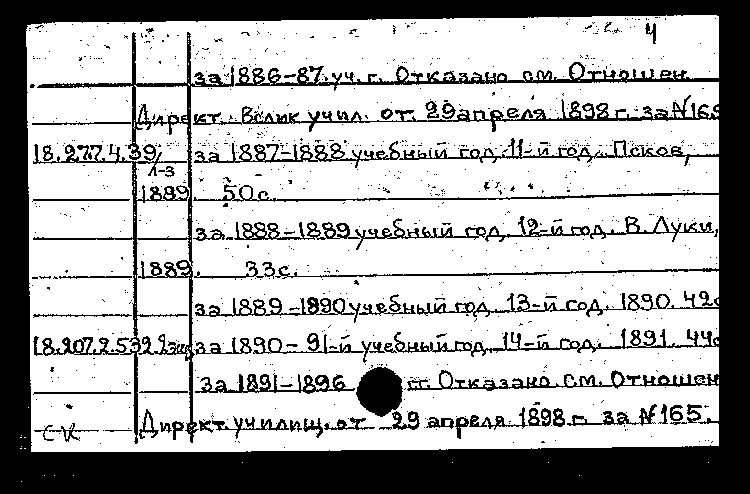 4
за 1886-87 уч. г. Отказано см. Отношен.
Директ. Велик учил. от. 29 апреля 1898 г. за №165
18.277.4.39/1-3 за 1887-1888 учебный год, 11-й год. Псков,
1889. 50 с.
за 1888-1889 учебный год, 12-й год. В. Луки,
1889. 33 с.
за 1889-1890 учебный год 13-й год. 1890. 42 с
18.207.2.532 за 1890-91-й учебный год, 14-й год. 1891. 44 с
за 1891-1896 гг. Отказано см. Отношен
Директ. училищ. от 29 апреля 1898 г. за №165.